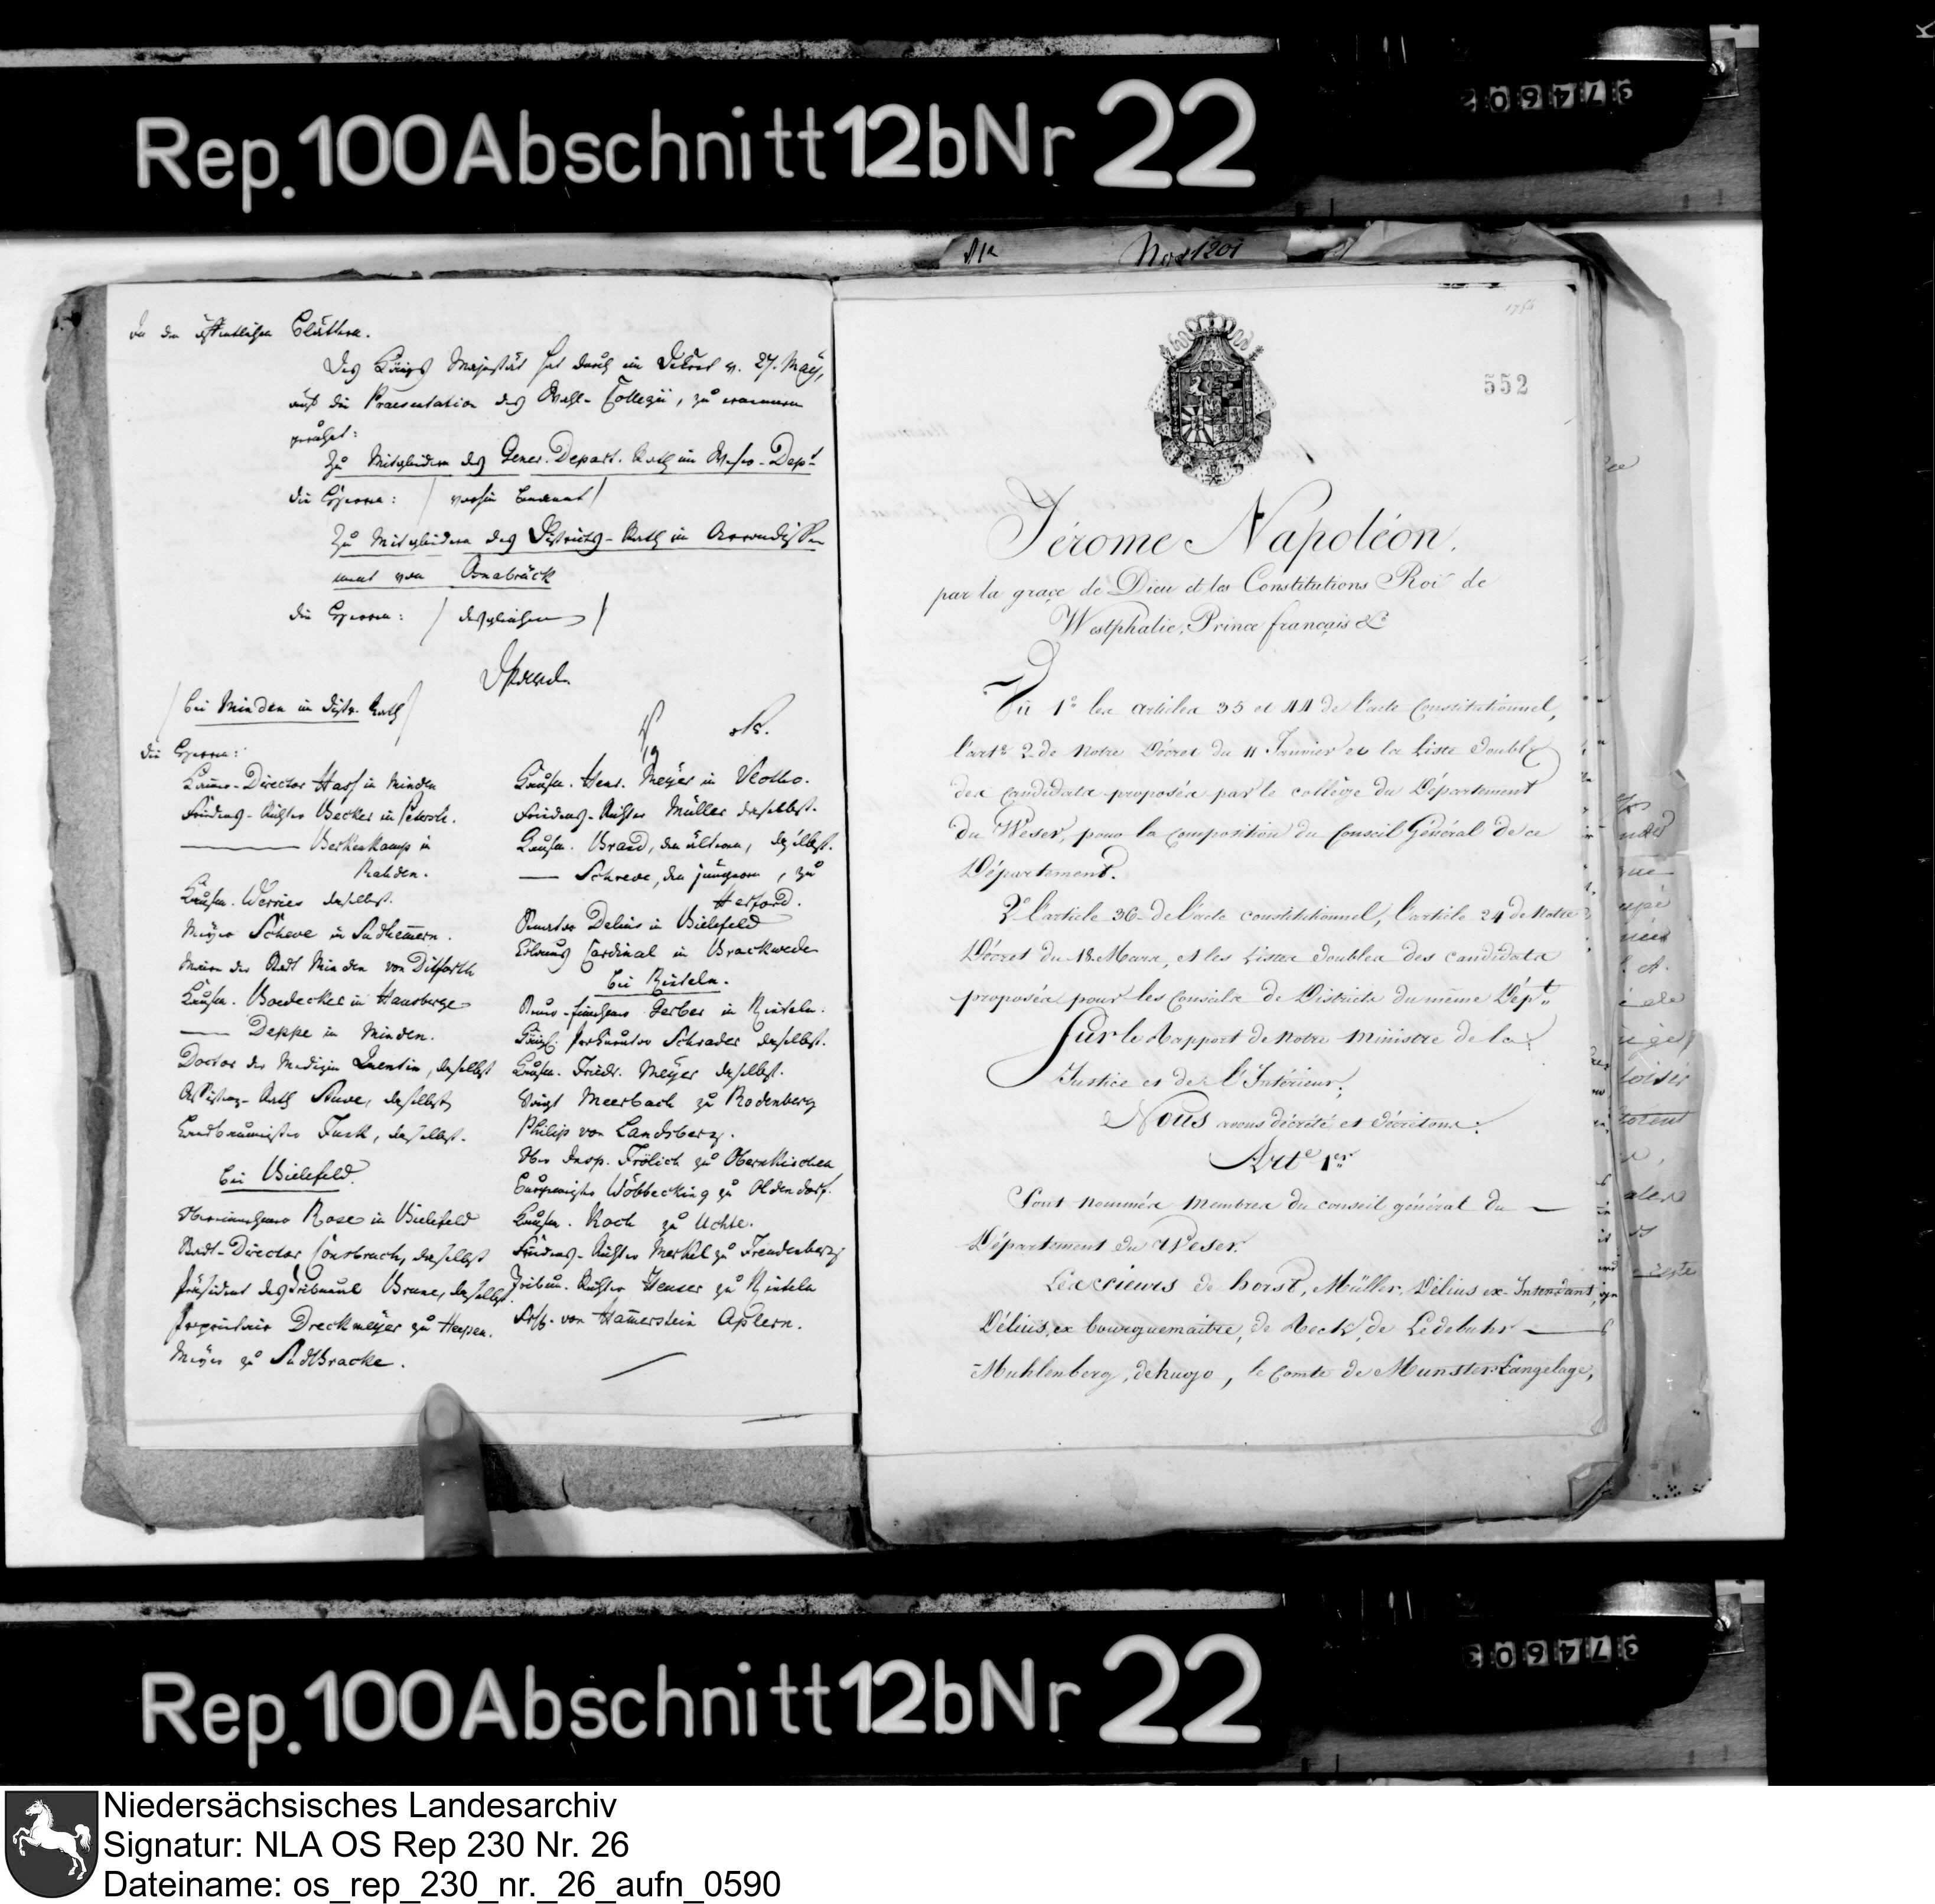 Rep. 100 Abschnitt 12b Nr 22
374602
Nro 1201
In den öffentlichen Blättern.
Des Königs Majestät hat durch ein Dekret v. 27. May,
auf die Praesentation des Wahl-Collegii, zu ernennen
geruhet:
Zu Mitgliedern des Gener. Depart. Rath im Weser-Dept
die Herren: / vorhin benannt /
Zu Mitgliedern des Districts-Rath im Arrondisse-
ment von Osnabrück
die Herren: / desgleichen /
/ bei Minden im Distr. Rath /
die Herren:
Director Hass in Minden
Friedens-Richter Becker in Petersh.
——— Berkenkamp in
Rahden.
Kaufm. Werries daselbst.
Meyer Scheve in Südhemmern.
Maire der Stadt Minden von Ditfurth
Kaufm. Boedecker in Hausberge
—— Deppe in Minden.
Doctor der Medizin Quentin, daselbst
Rath Stuve, daselbst
Landbaumeister Funk, daselbst.
bei Bielefeld.
Rose in Bielefeld
Stadt-Director Consbruch, daselbst
Präsident des Tribunal Brune, daselbst.
Proprietair Dreckmeyer zu Heepen.
Meyer zu Südbracke.
Kaufm. Henr. Meyer in Vlotho.
Friedens-Richter Müller daselbst.
Kaufm. Brand, der ältere, daselbst.
—— Schreve, der jüngere, zu
Herford.
Senator Delius in Bielefeld
Cardinal in Brackwede
bei Rinteln.
Gerber in Rinteln.
Schrader daselbst.
Kaufm. Friedr. Meyer daselbst.
Voigt Meerbach zu Rodenberg
Philip von Landsberg.
Ober Insp. Frölich zu Obernkirchen
Wöbbecking zu Oldendorf.
Kaufm. Koch zu Uchte.
Friedens-Richter Merkel zu Freudenberg
Tribun. Richter Heuser zu Rinteln
von Hammerstein Aplern.
552
Jérome Napoléon,
par la grace de Dieu et les Constitutions Roi de
Westphalie, Prince français &c
Vû 1° les articles 35 et 44 de l'acte Constitutionnel,
l'arte 2 de Notre Décret du 11 Janvier et la Liste double
des candidats proposés par le collège du Département
du Weser, pour la composition du Conseil Général de ce
Département.
2° l'article 36 de l'acte constitutionnel, l'article 24 de Notre
Décret du 18 Mars, et les Listes doubles des candidats
proposés pour les Conseils de Districts du même Dépt
Sur le Rapport de Notre Ministre de la
Justice et de l'Intérieur;
Nous avons décrété et décrétons:
Arte 1er
Sont nommés Membres du conseil général du
Département du Weser.
Les sieurs de horst, Müller, Délius ex-Intendant,
Délius, ex bourguemaitre, de Reck, de Ledebuhr
Muhlenberg, de hugo, le Comte de Munster-Langelage,
Rep. 100 Abschnitt 12b Nr 22
374603
Niedersächsisches Landesarchiv
Signatur: NLA OS Rep 230 Nr. 26
Dateiname: os_rep_230_nr._26_aufn_0590